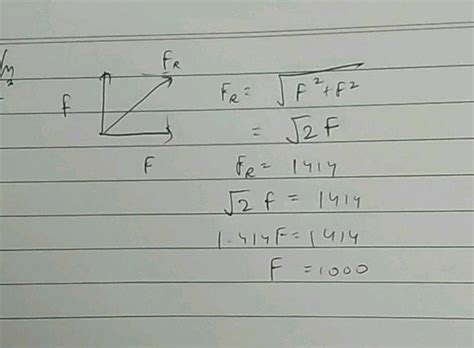 F_R
F
F
F_R = √F²+F²
= √2 F
F_R = 1414
√2 F = 1414
1.414F = 1414
F = 1000